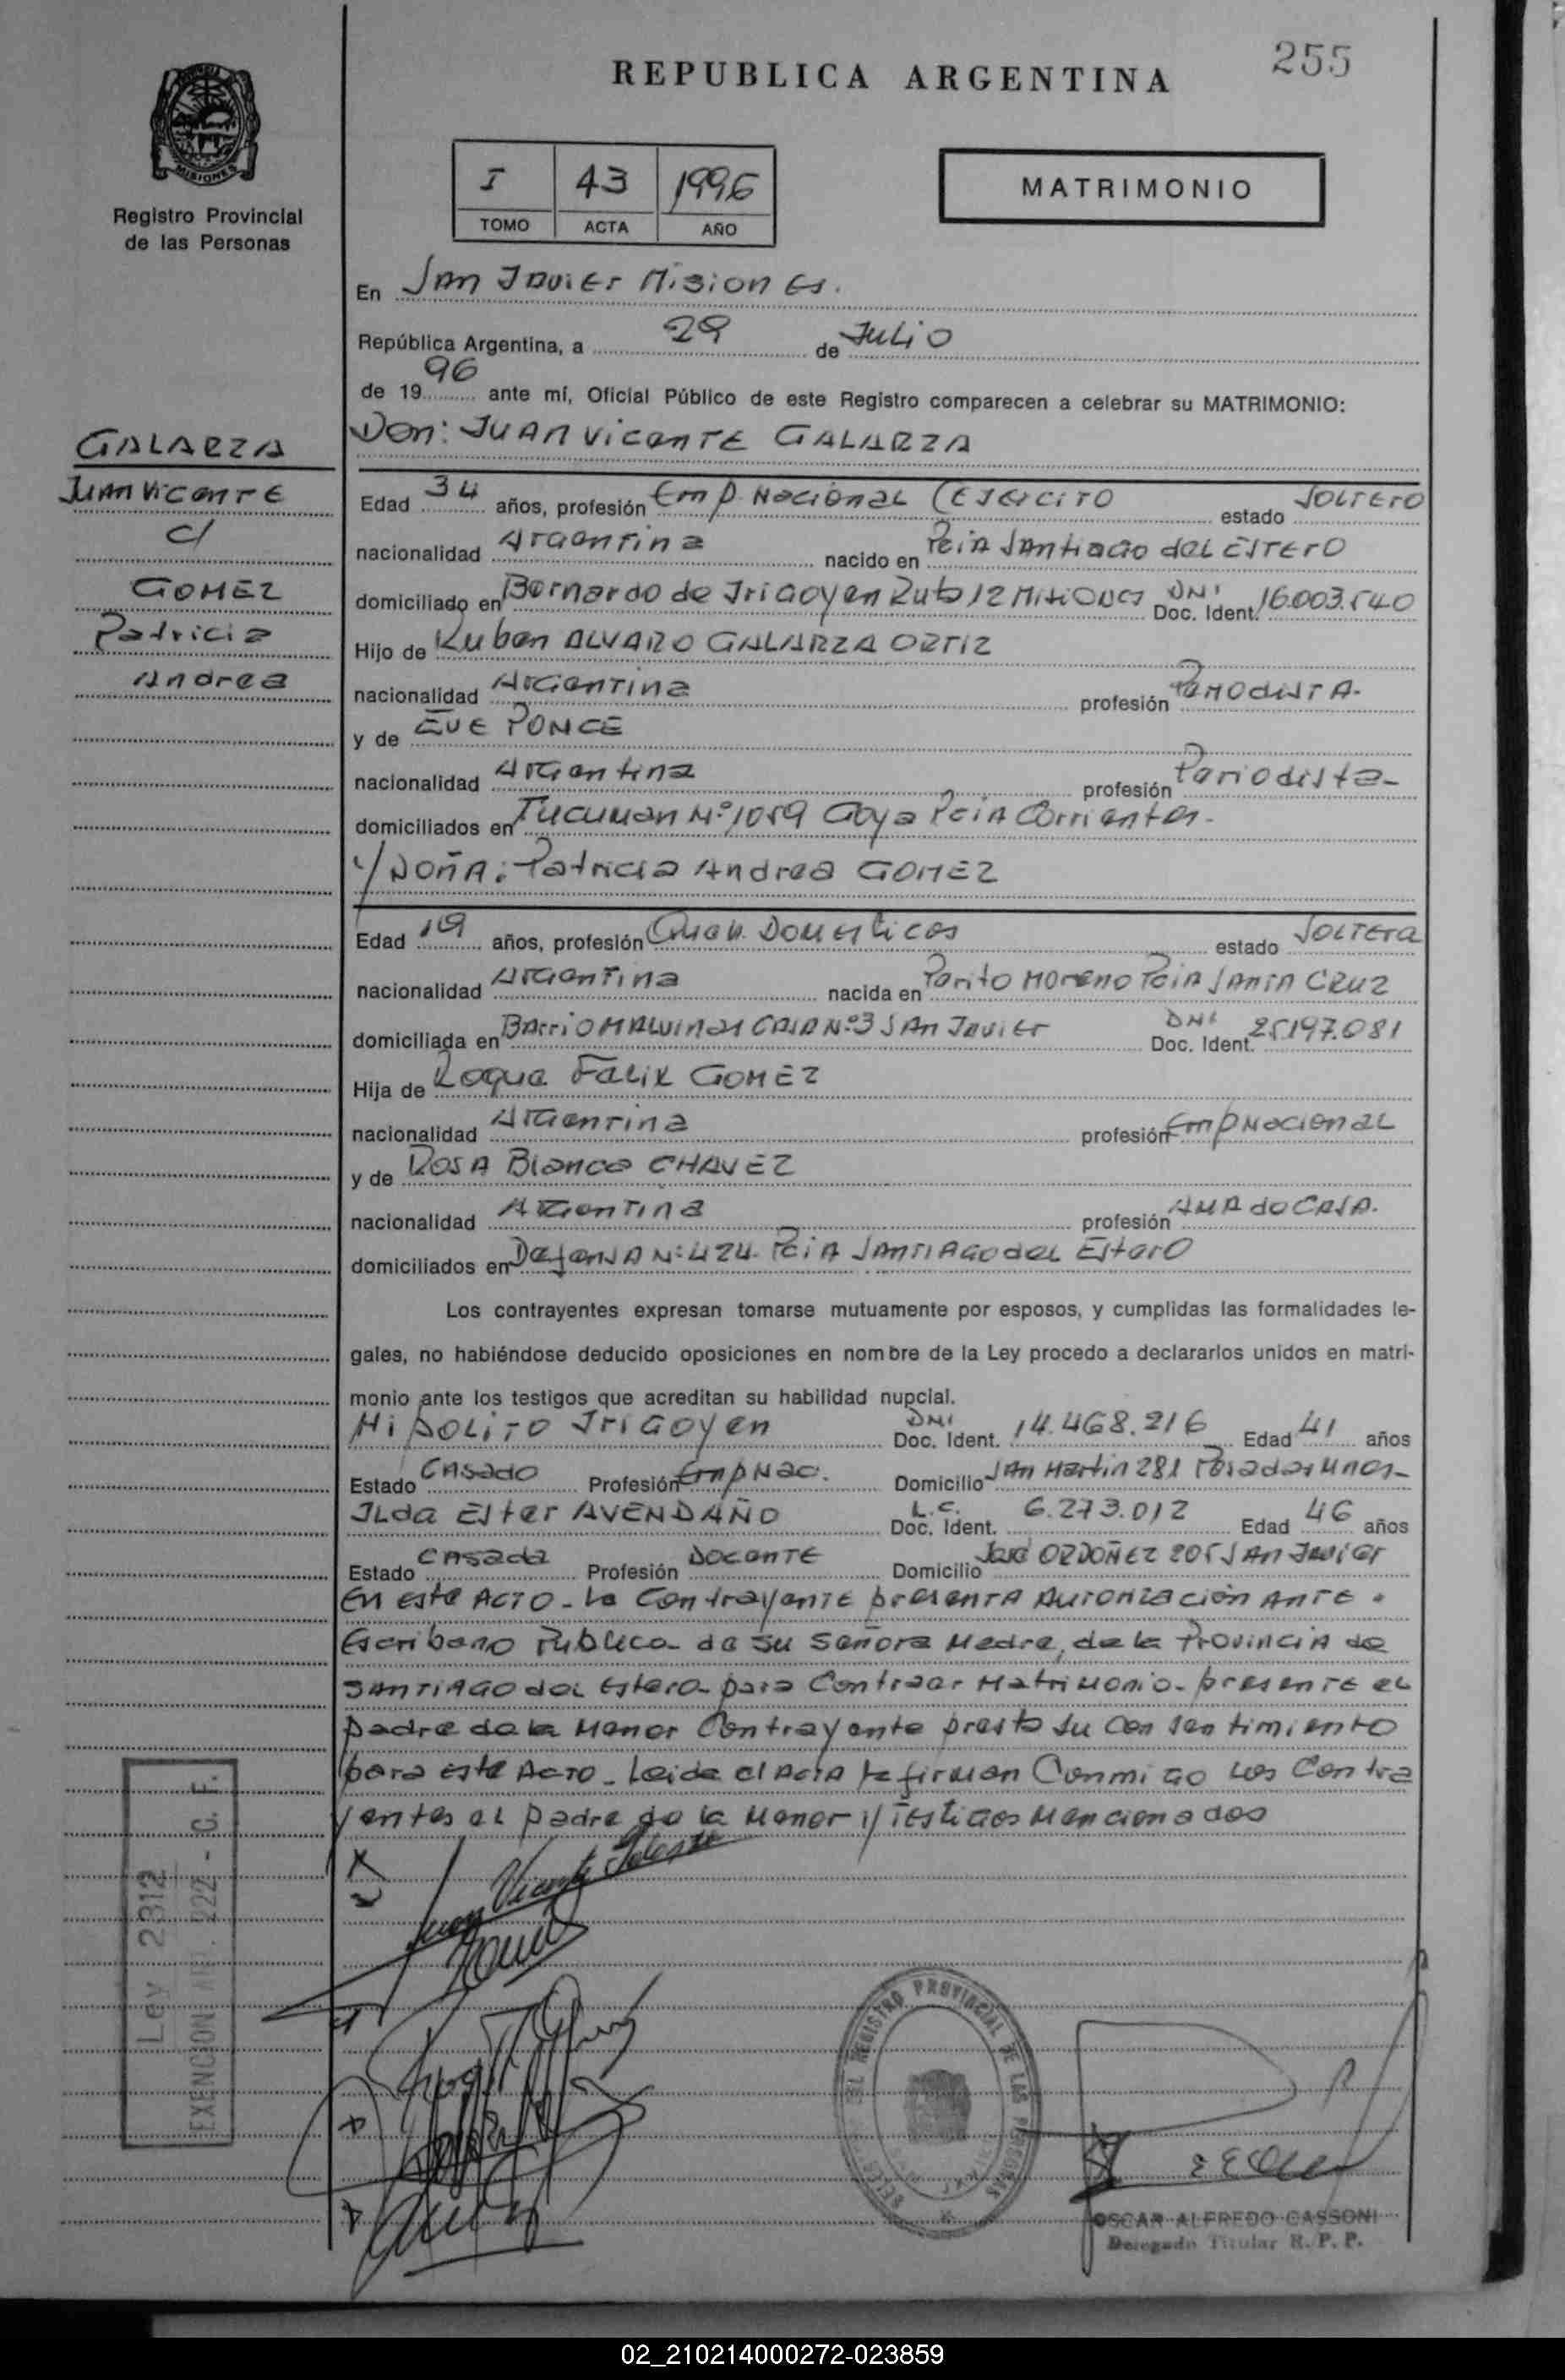 255
REPUBLICA ARGENTINA
MISIONES
Registro Provincial
de las Personas
I 43 1996
TOMO ACTA AÑO
MATRIMONIO
En San Javier Misiones.
República Argentina, a 29 de Julio
de 19 96 ante mí, Oficial Público de este Registro comparecen a celebrar su MATRIMONIO:
Don: JUAN Vicente GALARZA
GALARZA
Juan Vicente
c/
GOMEZ
Patricia
Andrea
Edad 34 años, profesión Emp Nacional (Ejercito estado SOLTERO
nacionalidad Argentina nacido en Pcia Santiago del ESTERO
domiciliado en Bernardo de Irigoyen Ruta 12 Misiones DNI Doc. Ident. 16.003.540
Hijo de Ruben ALVARO GALARZA ORTIZ
nacionalidad Argentina profesión Periodista.
y de EVE PONCE
nacionalidad Argentina profesión Periodista-
domiciliados en Tucuman Nº 1059 Goya Pcia Corrientes-
y DOÑA: Patricia Andrea GOMEZ
Edad 19 años, profesión Queh. Domesticos estado SOLTERA
nacionalidad Argentina nacida en Perito Moreno Pcia SANTA CRUZ
domiciliada en Barrio Malvinas CASA Nº3 San Javier DNI Doc. Ident. 25.197.081
Hija de Roque Felix GOMEZ
nacionalidad Argentina profesión Emp Nacional
y de ROSA Blanca CHAVEZ
nacionalidad Argentina profesión AMA de CASA.
domiciliados en Defensa Nº 424. Pcia SANTIAGO del Estero
Los contrayentes expresan tomarse mutuamente por esposos, y cumplidas las formalidades le-
gales, no habiéndose deducido oposiciones en nombre de la Ley procedo a declararlos unidos en matri-
monio ante los testigos que acreditan su habilidad nupcial.
Hipolito Irigoyen DNI Doc. Ident. 14.468.216 Edad 41 años
Estado Casado Profesión Emp Nac. Domicilio San Martin 281 Posadas Mnes-
Ilda Ester AVENDAÑO L.C. Doc. Ident. 6.273.012 Edad 46 años
Estado Casada Profesión Docente Domicilio José ORDOÑEZ 205 San Javier
En este Acto- la Contrayente presenta Autorización Ante
Escribano Publico- de su Señora Madre, de la Provincia de
SANTIAGO del Estero- para Contraer Matrimonio- presente el
padre de la Menor Contrayente presta su consentimiento
para este Acto- Leida el Acta la firman Conmigo los Contra
yentes el padre de la Menor y Testigos Mencionados
Juan Vicente
Ley 2312
EXENCION ART. 222 - C. F.
REGISTRO PROVINCIAL DE LAS PERSONAS
OSCAR ALFREDO CASSONI
Delegado Titular R. P. P.
02_210214000272-023859